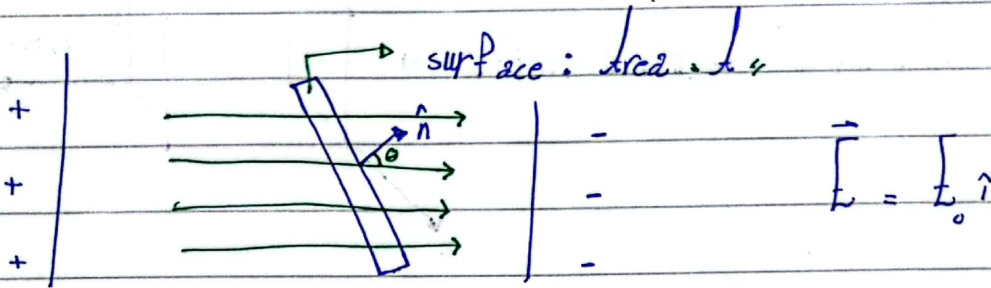 surface : Area . A
+ n̂ θ -
+ - E⃗ = E₀ î
+ -